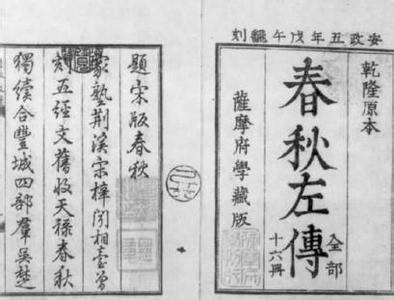 安政五年戊午飜刻
乾隆原本
春秋左傳
全部
十六冊
薩摩府學藏版
題宋版春秋
家塾荆溪宋梓聞相臺曾
刻五經文舊收天祿春秋
獨續合豐城四部羣吳楚